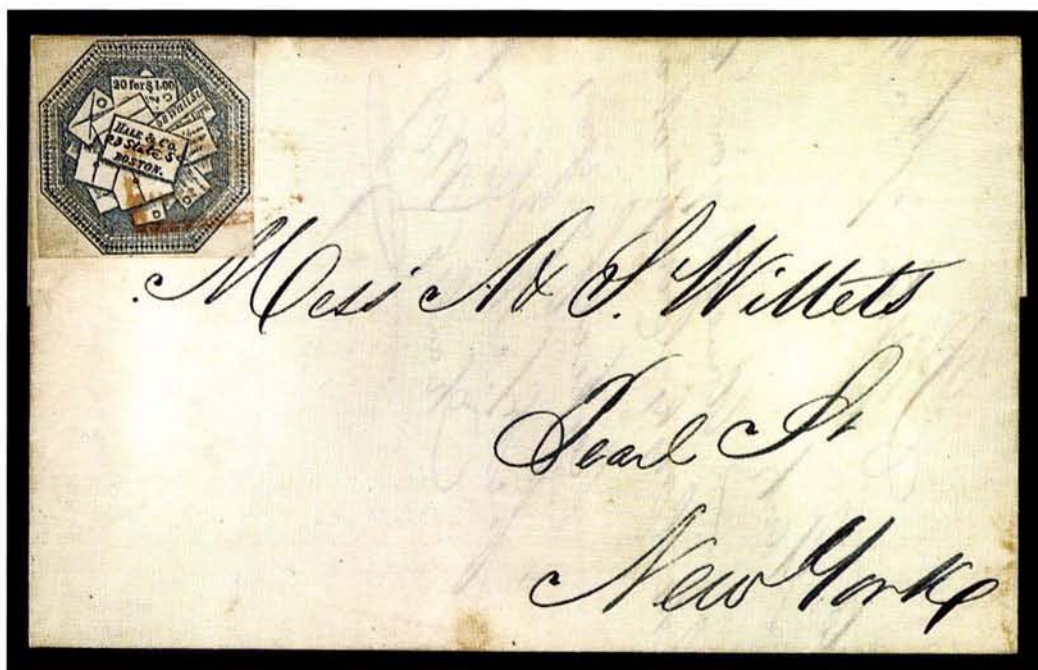 20 for $1.00
HALE & Co.
23 State St
BOSTON.
Mess A & S. Willets
Pearl St
New York